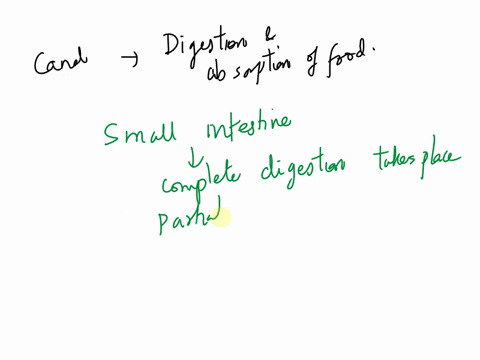 Canal → Digestion &
absorption of food.
Small intestine
↓
complete digestion takes place
Partial